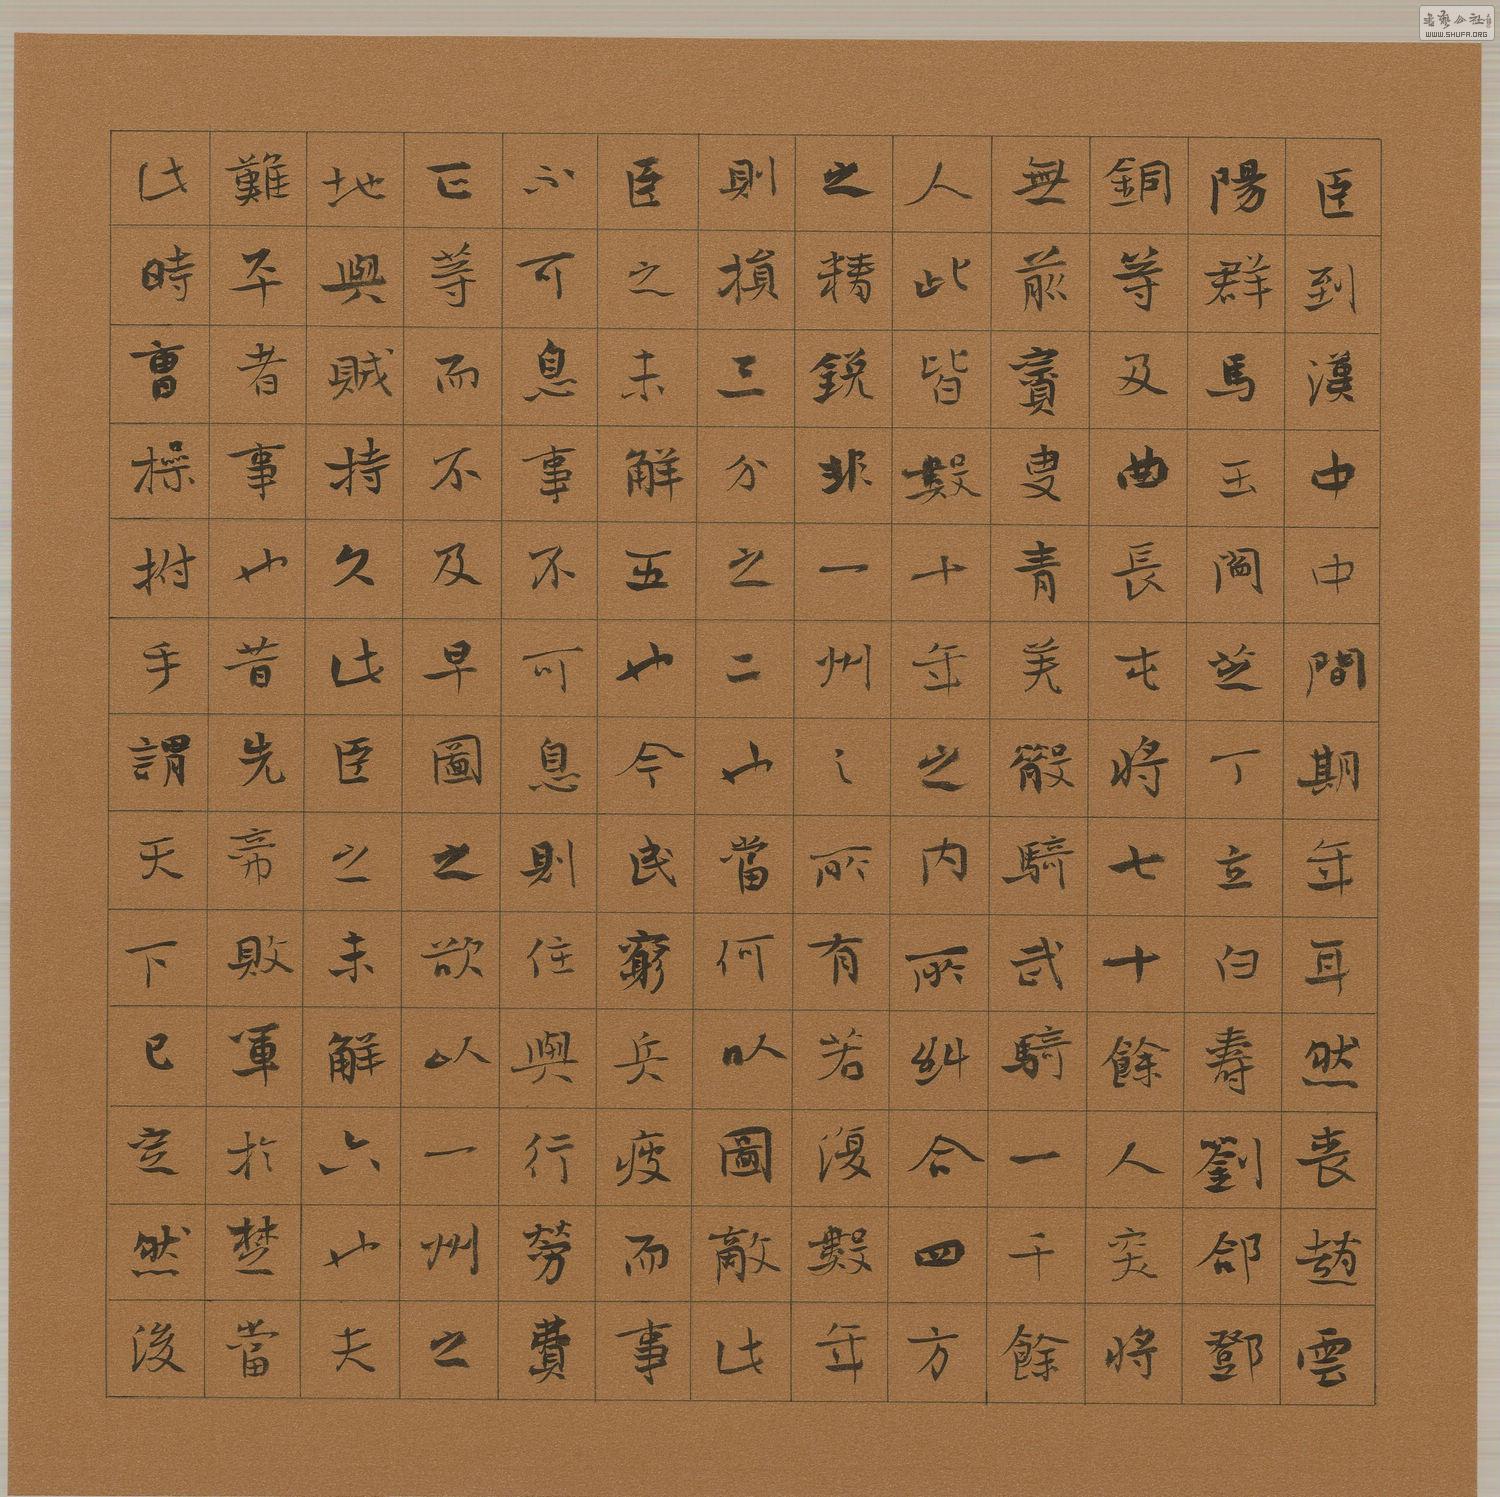 臣到漢中中間期年耳然喪趙雲
陽群馬玉閻芝丁立白壽劉郃鄧
銅等及曲長屯將七十餘人突將
無前賨叟青羌散騎武騎一千餘
人此皆數十年之内所糾合四方
之精鋭非一州之所有若復數年
則損三分之二也當何以圖敵此
臣之未解五也今民窮兵疲而事
不可息事不可息則住與行勞費
正等而不及早圖之欲以一州之
地與賊持久此臣之未解六也夫
難平者事也昔先帝敗軍於楚當
此時曹操拊手謂天下已定然後
WWW.SHUFA.ORG